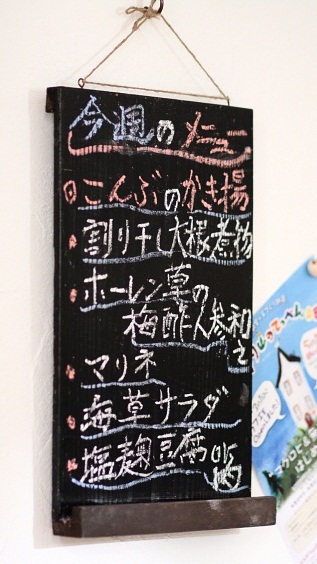 今週のメニュー
こんぶのかき揚
割り干し大根煮物
ホーレン草の
梅酢人参和え
マリネ
海草サラダ
塩麹豆腐